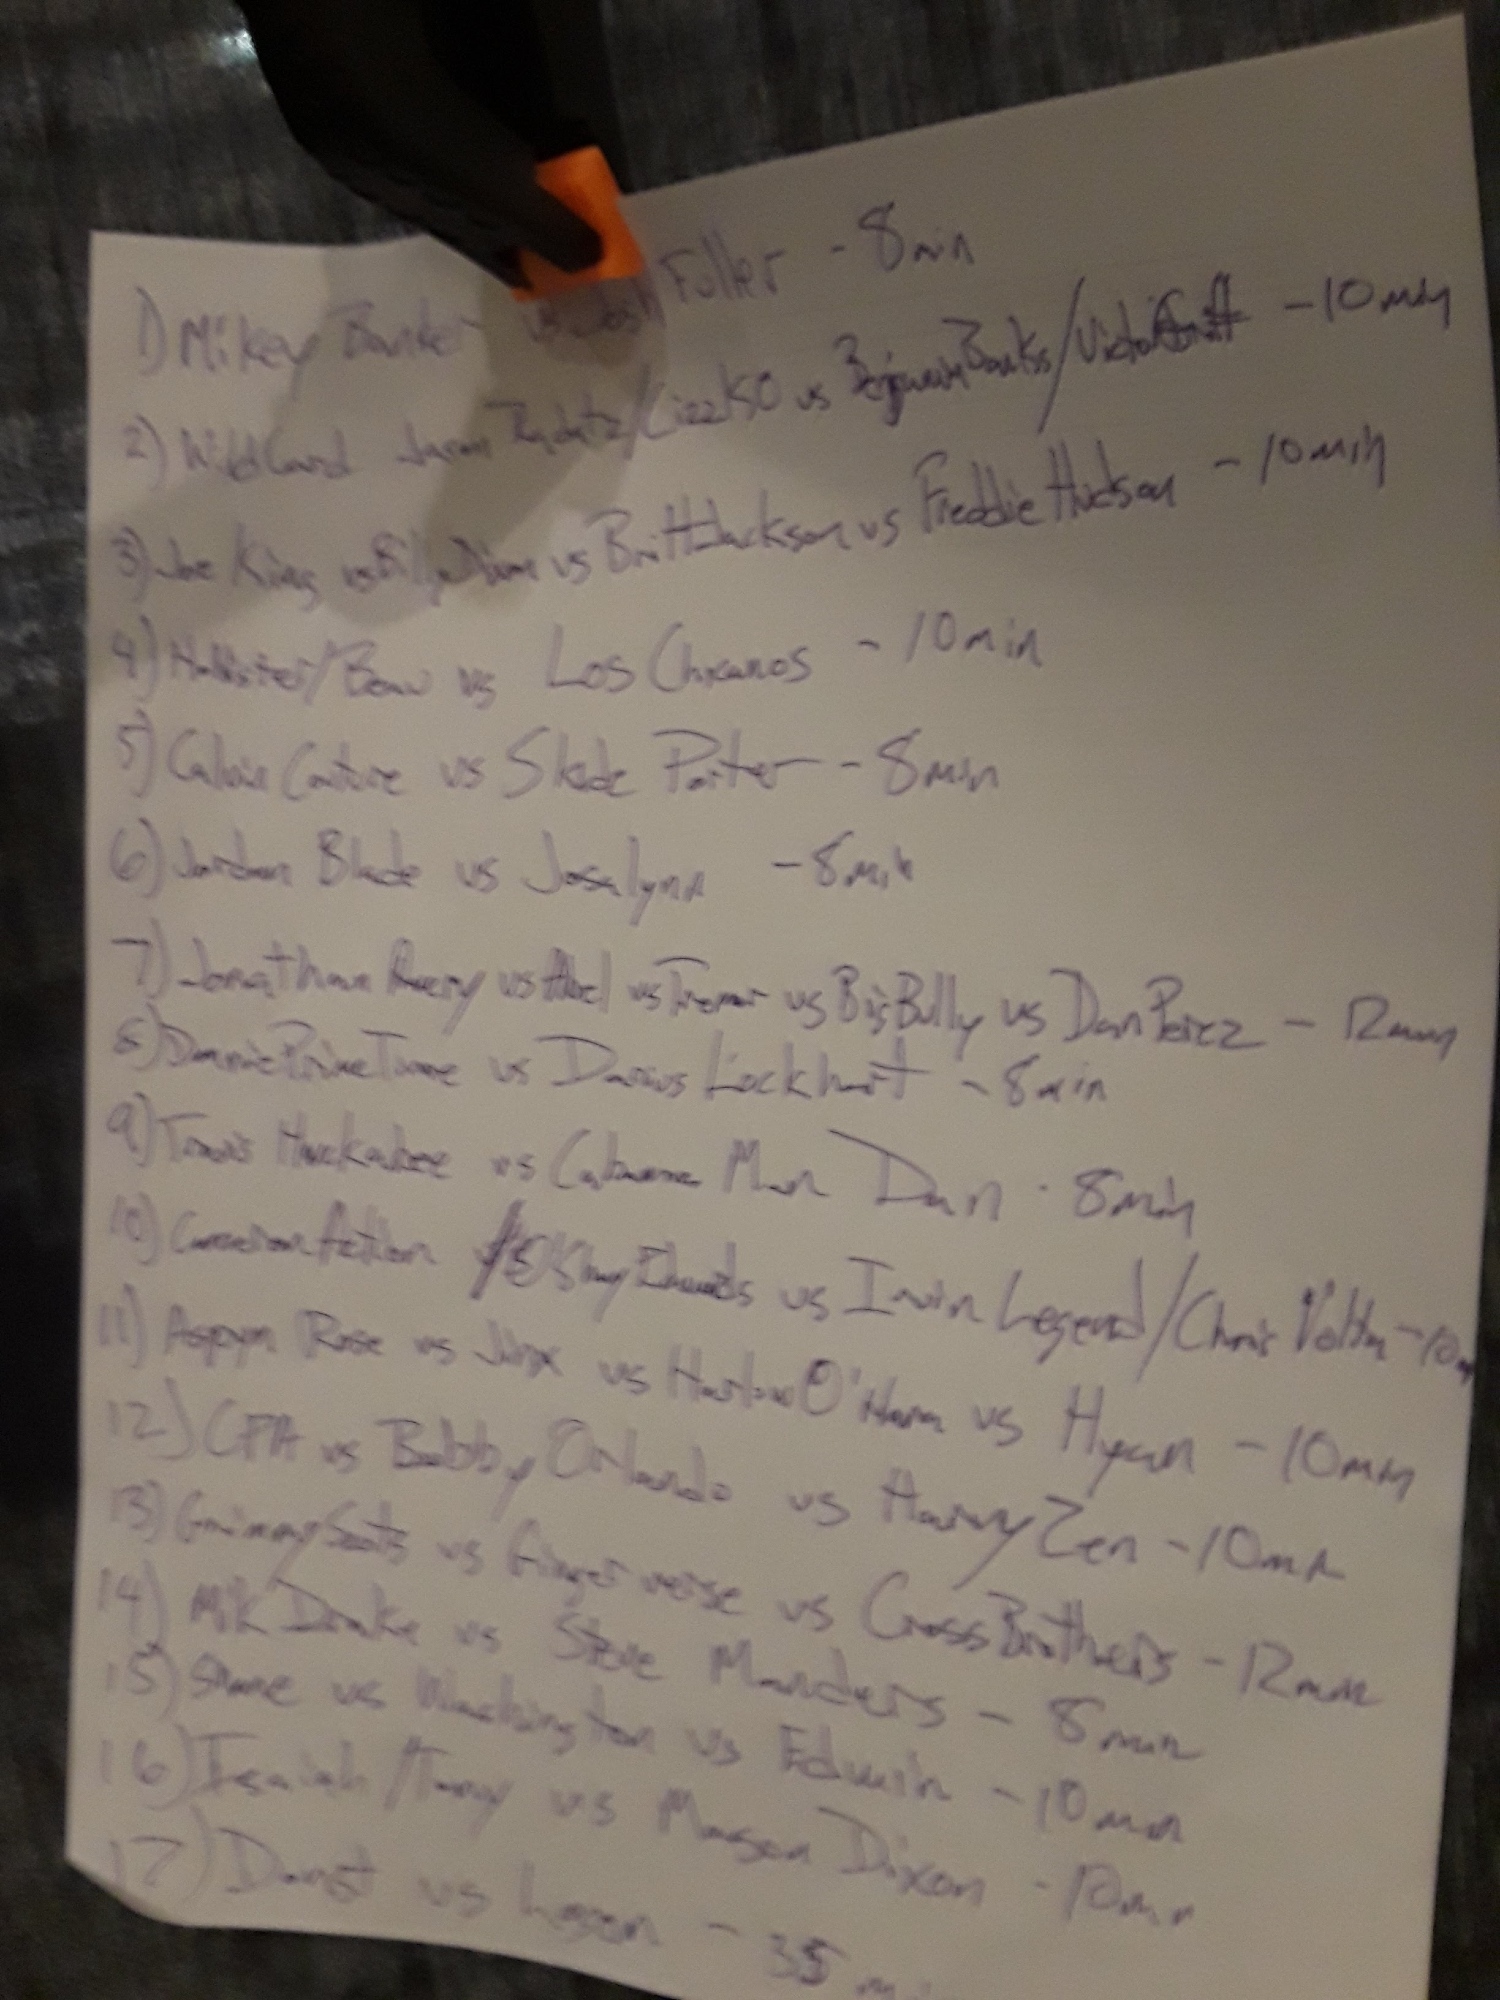 1) Mikey Banker vs Josh Fuller - 8 min
2) WildCard Jaron /Lizz KO vs Benjamin Banks/Victor - 10 min
3) Joe King vs Billy vs Britt Jackson vs Freddie Hudson - 10 min
4) Hollister/Beau vs Los Chicanos - 10 min
5) Calvin Couture vs Slade Porter - 8 min
6) Jordan Blade vs Josalynn - 8 min
7) Jonathan Avery vs Abel vs vs Big Bully vs Dan Perez - 12 min
8) Donnie PrimeTime vs Darius Lockhart - 8 min
9) Travis Huckabee vs Cabana Man Dan - 8 min
10) Cameron vs Irvin Legend/Chris - 10 m
11) Aspyn Rose vs Jinx vs Harlow O'Hara vs Hyan - 10 min
12) CPA vs Bobby Orlando vs Harvy Zen - 10 min
13) Grimmy vs Gingerverse vs Cross Brothers - 12 min
14) Mik Drake vs Steve Manders - 8 min
15) Shane vs Washington vs Edwin - 10 min
16) Isaiah/ vs Mason Dixon - 10 min
17) vs - 35 mi